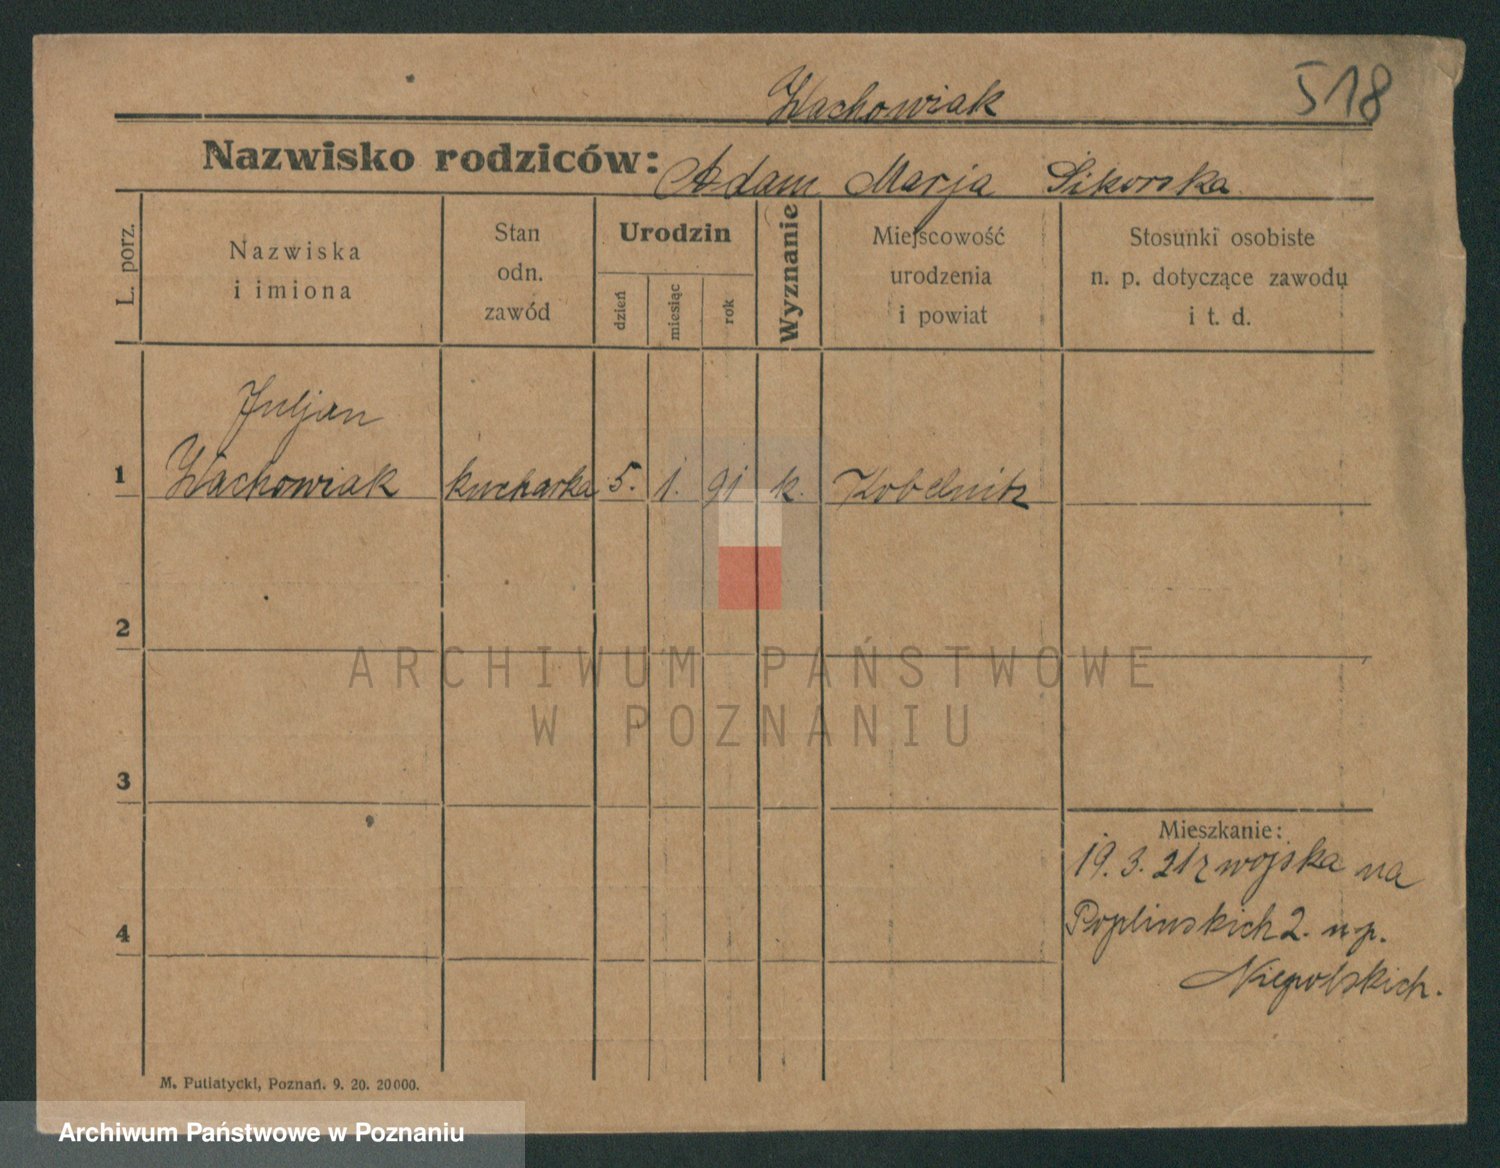 Wachowiak
518
Nazwisko rodziców: Adam Marja Sikorska
L. porz.
Nazwiska
i imiona
Stan
odn.
zawód
Urodzin
dzień
miesiąc
rok
Wyznanie
Miejscowość
urodzenia
i powiat
Stosunki osobiste
n. p. dotyczące zawodu
i t. d.
Juljan
1 Wachowiak kucharka 5. 1. 91 k. Kobelnitz
2
3
4
Mieszkanie:
19. 3. 21 z wojska na
Poplinskich 2. u p.
Niegolskich.
M. Putiatycki, Poznań. 9. 20. 20000.
ARCHIWUM PAŃSTWOWE
W POZNANIU
Archiwum Państwowe w Poznaniu